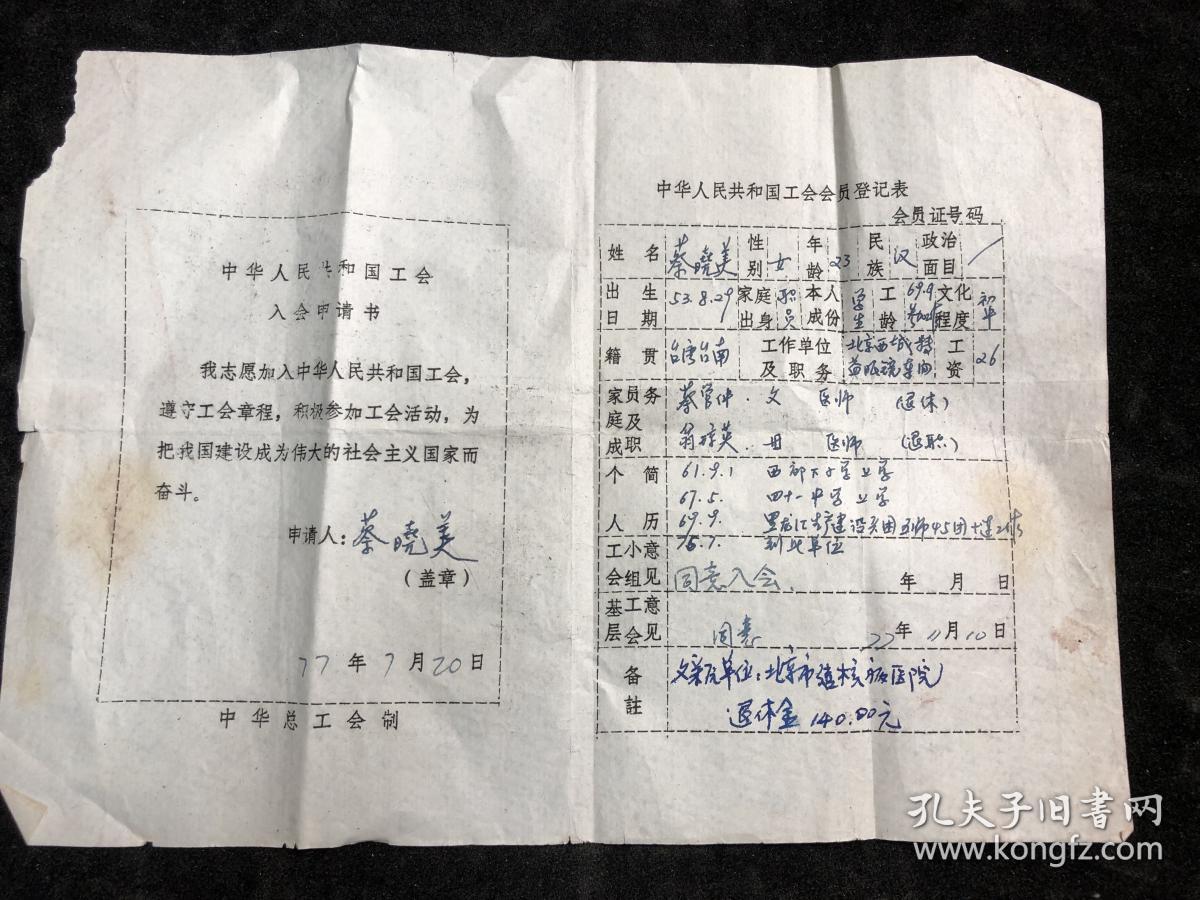 中华人民共和国工会
入会申请书
我志愿加入中华人民共和国工会，
遵守工会章程，积极参加工会活动，为
把我国建设成为伟大的社会主义国家而
奋斗。
申请人：蔡晓美
（盖章）
77年7月20日
中华总工会制
中华人民共和国工会会员登记表
会员证号码
姓名 蔡晓美 性别 女 年龄 23 民族 汉 政治面目 /
出生日期 53.8.29 家庭出身 职员 本人成份 学生 工龄 69.9参加 文化程度 初中
籍贯 台湾台南 工作单位及职务 北京西城 工资 26
家庭成员及职务 蔡 仲．父 医师 （退休）
翁 英．母 医师 （退职）
个人简历 61.9.1 西 小学上学
67.5. 四十一中学上学
69.9. 黑龙江生产建设兵团五师45团十连工作
75.7. 到此单位
工会小组意见 同意入会． 年 月 日
基层工会意见 同意 77年11月10日
备註 父亲单位：北京市结核病医院
退休金140.00元
孔夫子旧書网
www.kongfz.com